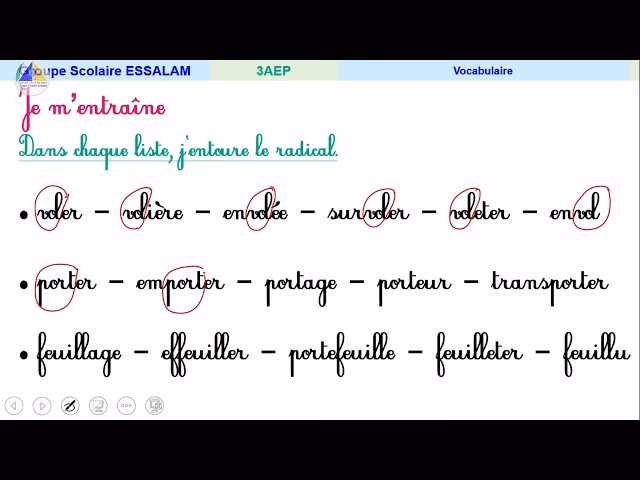 Groupe Scolaire ESSALAM 3AEP Vocabulaire
Je m'entraîne
Dans chaque liste, j'entoure le radical.
• voler – volière – envolée – survoler – voleter – envol
• porter – emporter – portage – porteur – transporter
• feuillage – effeuiller – portefeuille – feuilleter – feuillu